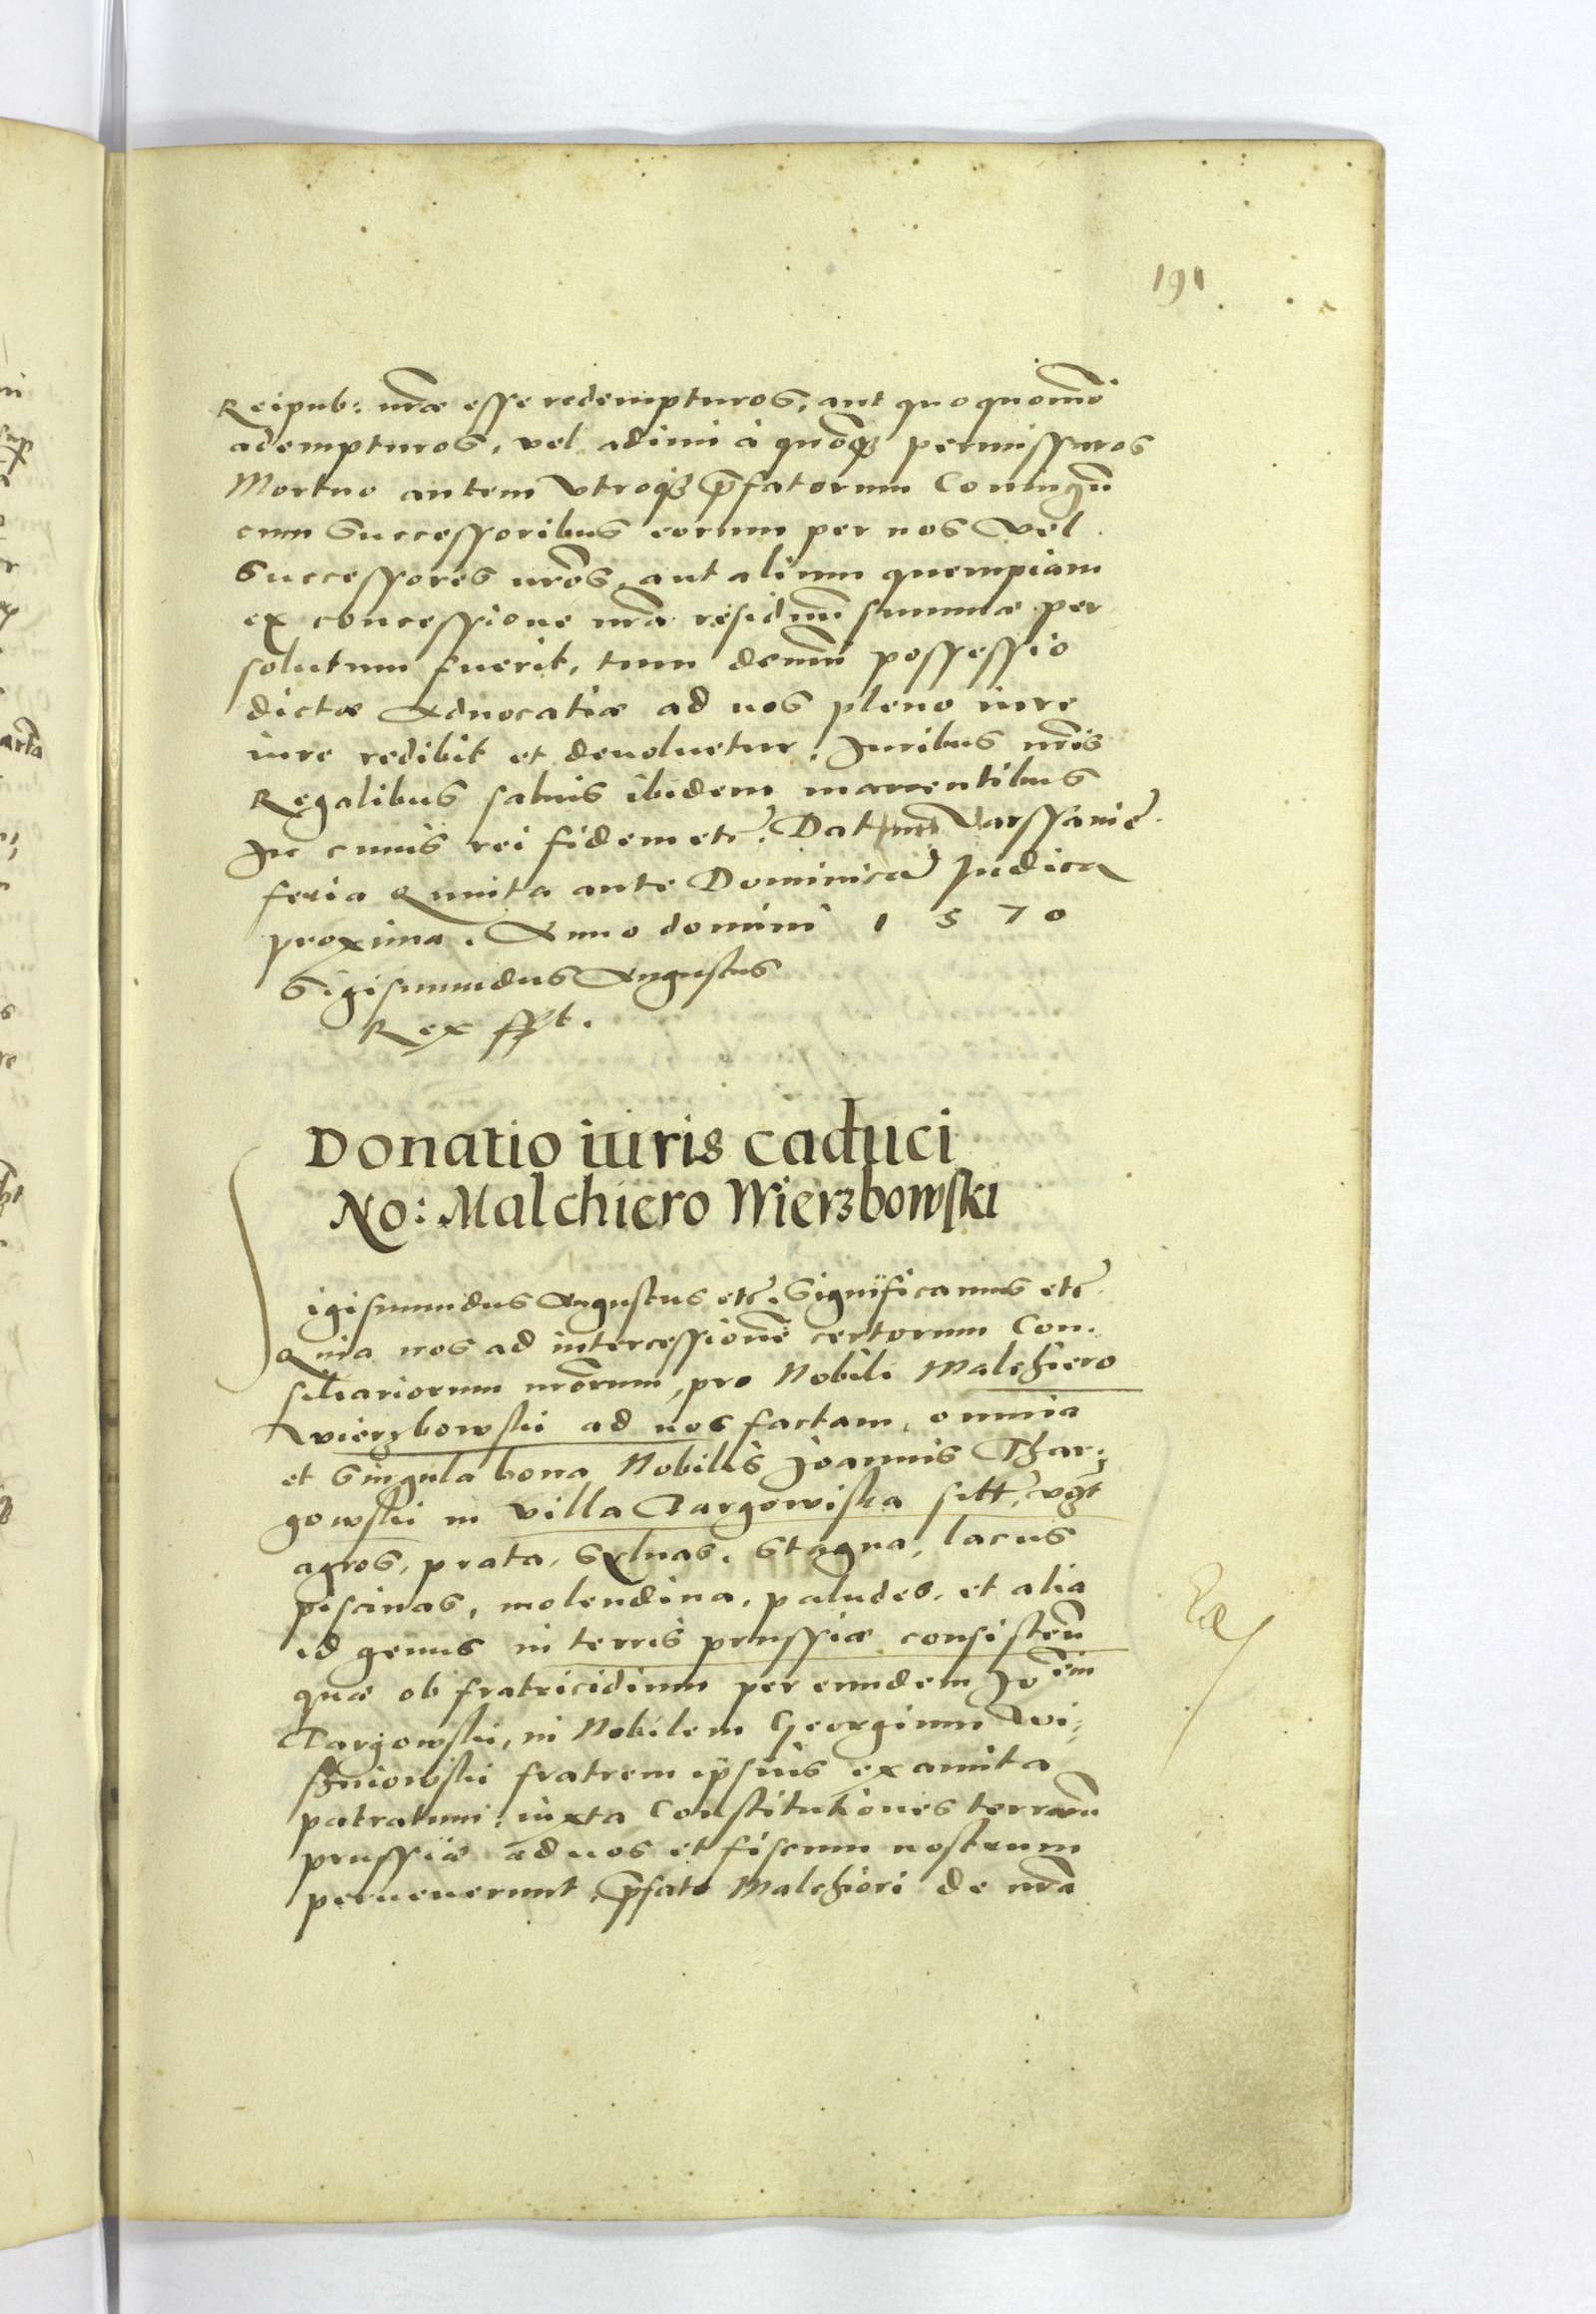 191
Reipub: nr̃æ esse redempturos, aut quoquomõ
adempturos, vel adimi à quoq̃ꝫ permissuros
Mortuo autem vtroqꝫ p̃fatorum Coniugũ
cum Successoribus eorum per nos vel
Successores nr̃os, aut alium quempiam
ex concessione nr̃a residuũ summæ per
solutum fuerit, tum demũ possessio
dictæ Aduocatiæ ad nos pleno iure
iure redibit et deuoluetur. Juribus nr̃is
Regalibus saluis ibidem manentibus
In cuius rei fidem etc̃. Dat Varssauie.
feria Quinta ante Dominicã Judica
proxima. Anno domini 1 5 7 0
Sigismundus Augustus
Rex sst.
Donatio iuris caduci
No: Malchiero Wierzbowski
igismundus Augustus etc̃. Significamus etc̃
Quia nos ad intercessionẽ certorum Con.
siliariorum nr̃orum, pro Nobili Malchiero
Wierzbowski ad nos factam, omnia
et Singula bona Nobilis Joannis Thar;
gowski in villa Targowiska sitt̃, vꝫt
agros, prata, Syluas, Stagna, lacus
piscinas, molendina, paludes, et alia
id genus in terris prussiæ consisteñ
quæ ob fratricidium per eundem Joem̃
Targowski, in Nobilem Georgium Wi;
szniowski fratrem ipsius ex amita
patratum: iuxta Constitutiones terrarũ
prussiæ ad nos et fiscum nostrum
peruenerunt, p̃fato Malchiori de nr̃a